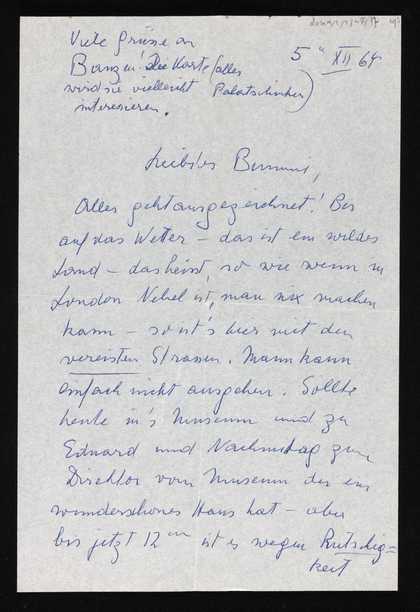 Viele Grüsse an
Banzen! Die Karte (alles
wird sie vielleicht Palatschinken)
interesieren.
5 XII 64
Liebstes Bimmi,
Alles geht ausgezeichnet! Bis
auf das Wetter – das ist ein wildes
Land – das heisst, so wie wenn in
London Nebel ist, man nix machen
kann – so ist's hier mit den
vereisten Strassen. Mann kann
einfach nicht ausgehen. Sollte
heute in's Museum und zu
Eduard und Nachmittag zum
Direktor vom Museum der ein
wunderschönes Haus hat – aber
bis jetzt 12 Uhr ist es wegen Rutschig=
keit